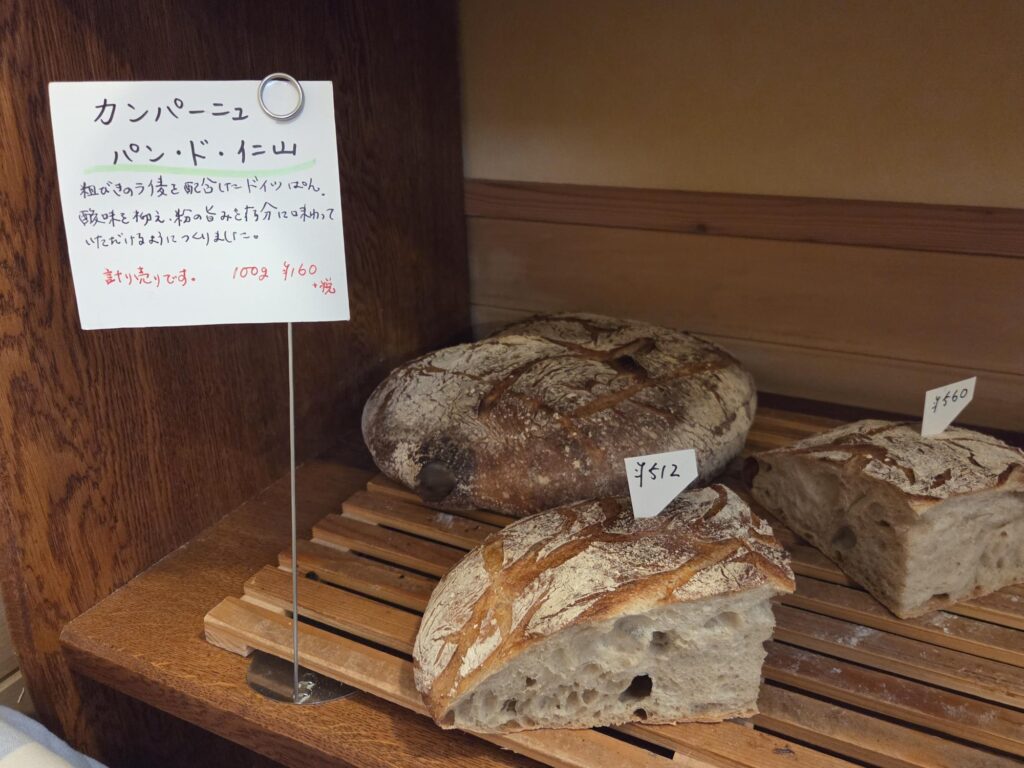 カンパーニュ
パン・ド・仁山
粗びきのライ麦を配合したドイツぱん。
酸味を抑え、粉の旨みを存分に味わって
いただけるようにつくりました。
計り売りです。 100g ¥160
+税
¥512
¥560